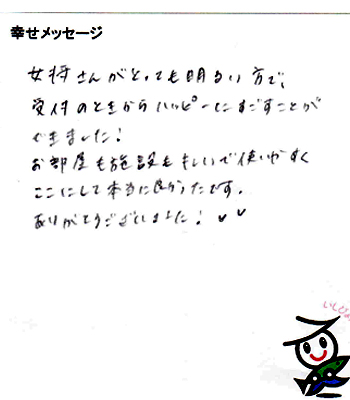 幸せメッセージ
女将さんがとっても明るい方で、
受付のときからハッピーにすごすことが
できました!
お部屋も施設もキレイで使いやすく
ここにして本当に良かったです。
ありがとうございました!